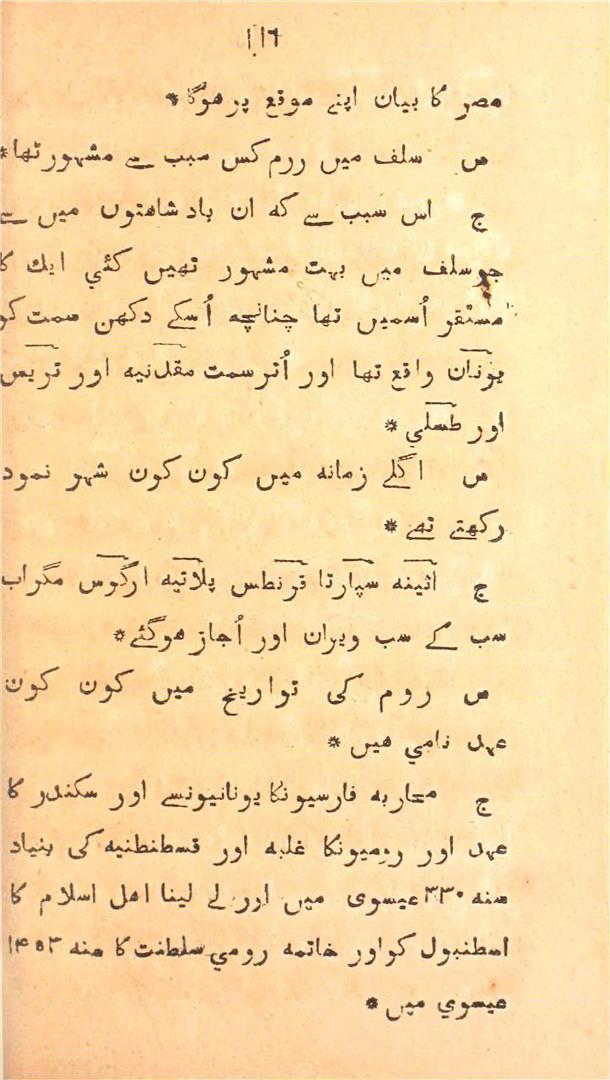 ۱۱۶
مصر کا بیان اپنے موقع پر ھوگا *
س سلف میں روم کس سبب سے مشہور تھا *
ج اس سبب سے کہ ان باد شاھتوں میں سے
جو سلف میں بہت مشہور تھیں کئي ایك کا
مستقر اُسمیں تھا چنانچہ اُسکے دکھن سمت کو
یونان واقع تھا اور اُتر سمت مقدنیہ اور تریس
اور طسلي *
س اگلے زمانہ میں کون کون شہر نمود
رکھتے تھے *
ج اثینہ سپارتا قرنطس پلاتیہ ارگوس مگراب
سب کے سب ویران اور اُجاڑ ھوگئے *
س روم کی تواریخ میں کون کون
عہد نامي ھیں *
ج محاربہ فارسیونکا یونانیونسے اور سکندر کا
عہد اور رومیونکا غلبہ اور قسطنطنیہ کی بنیاد
سنہ ۳۳۰ عیسوی میں اور لے لینا اھل اسلام کا
اسطنبول کو اور خاتمہ رومي سلطنت کا سنہ ۱۴۵۳
عیسوي میں *